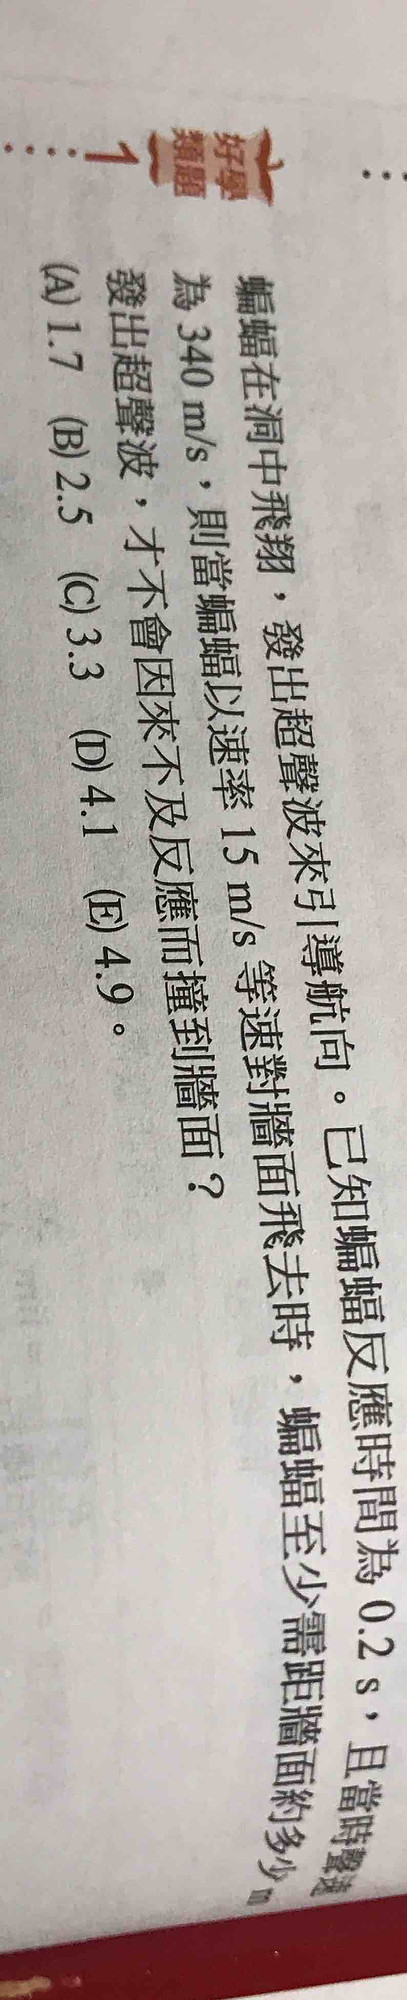 好學
類題
1
蝙蝠在洞中飛翔，發出超聲波來引導航向。已知蝙蝠反應時間為 0.2 s，且當時聲速
為 340 m/s，則當蝙蝠以速率 15 m/s 等速對牆面飛去時，蝙蝠至少需距牆面約多少 m
發出超聲波，才不會因來不及反應而撞到牆面？
(A) 1.7 (B) 2.5 (C) 3.3 (D) 4.1 (E) 4.9。